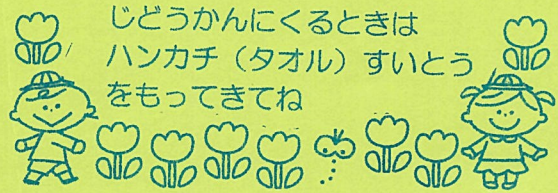 じどうかんにくるときは
ハンカチ（タオル）すいとう
をもってきてね